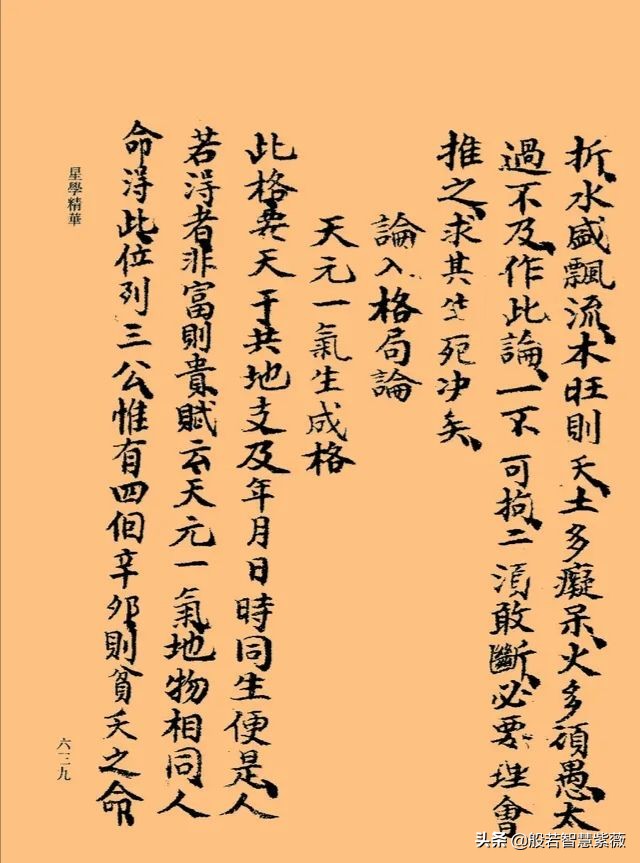 折水盛飄流木旺則夭土多癡呆火多頑愚太
過不及作此論一不可拘二須敢斷必要理會
推之求其生死决矣
論入格局論
天元一氣生成格
此格要天干共地支及年月日時同生便是人
若得者非富則貴賦云天元一氣地物相同人
命得此位列三公惟有四個辛卯則貧夭之命
星學精華
六三九
头条 @般若智慧紫薇